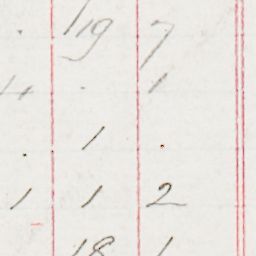 . 19 7
4 . 1
. 1 .
1 1 2
18 1